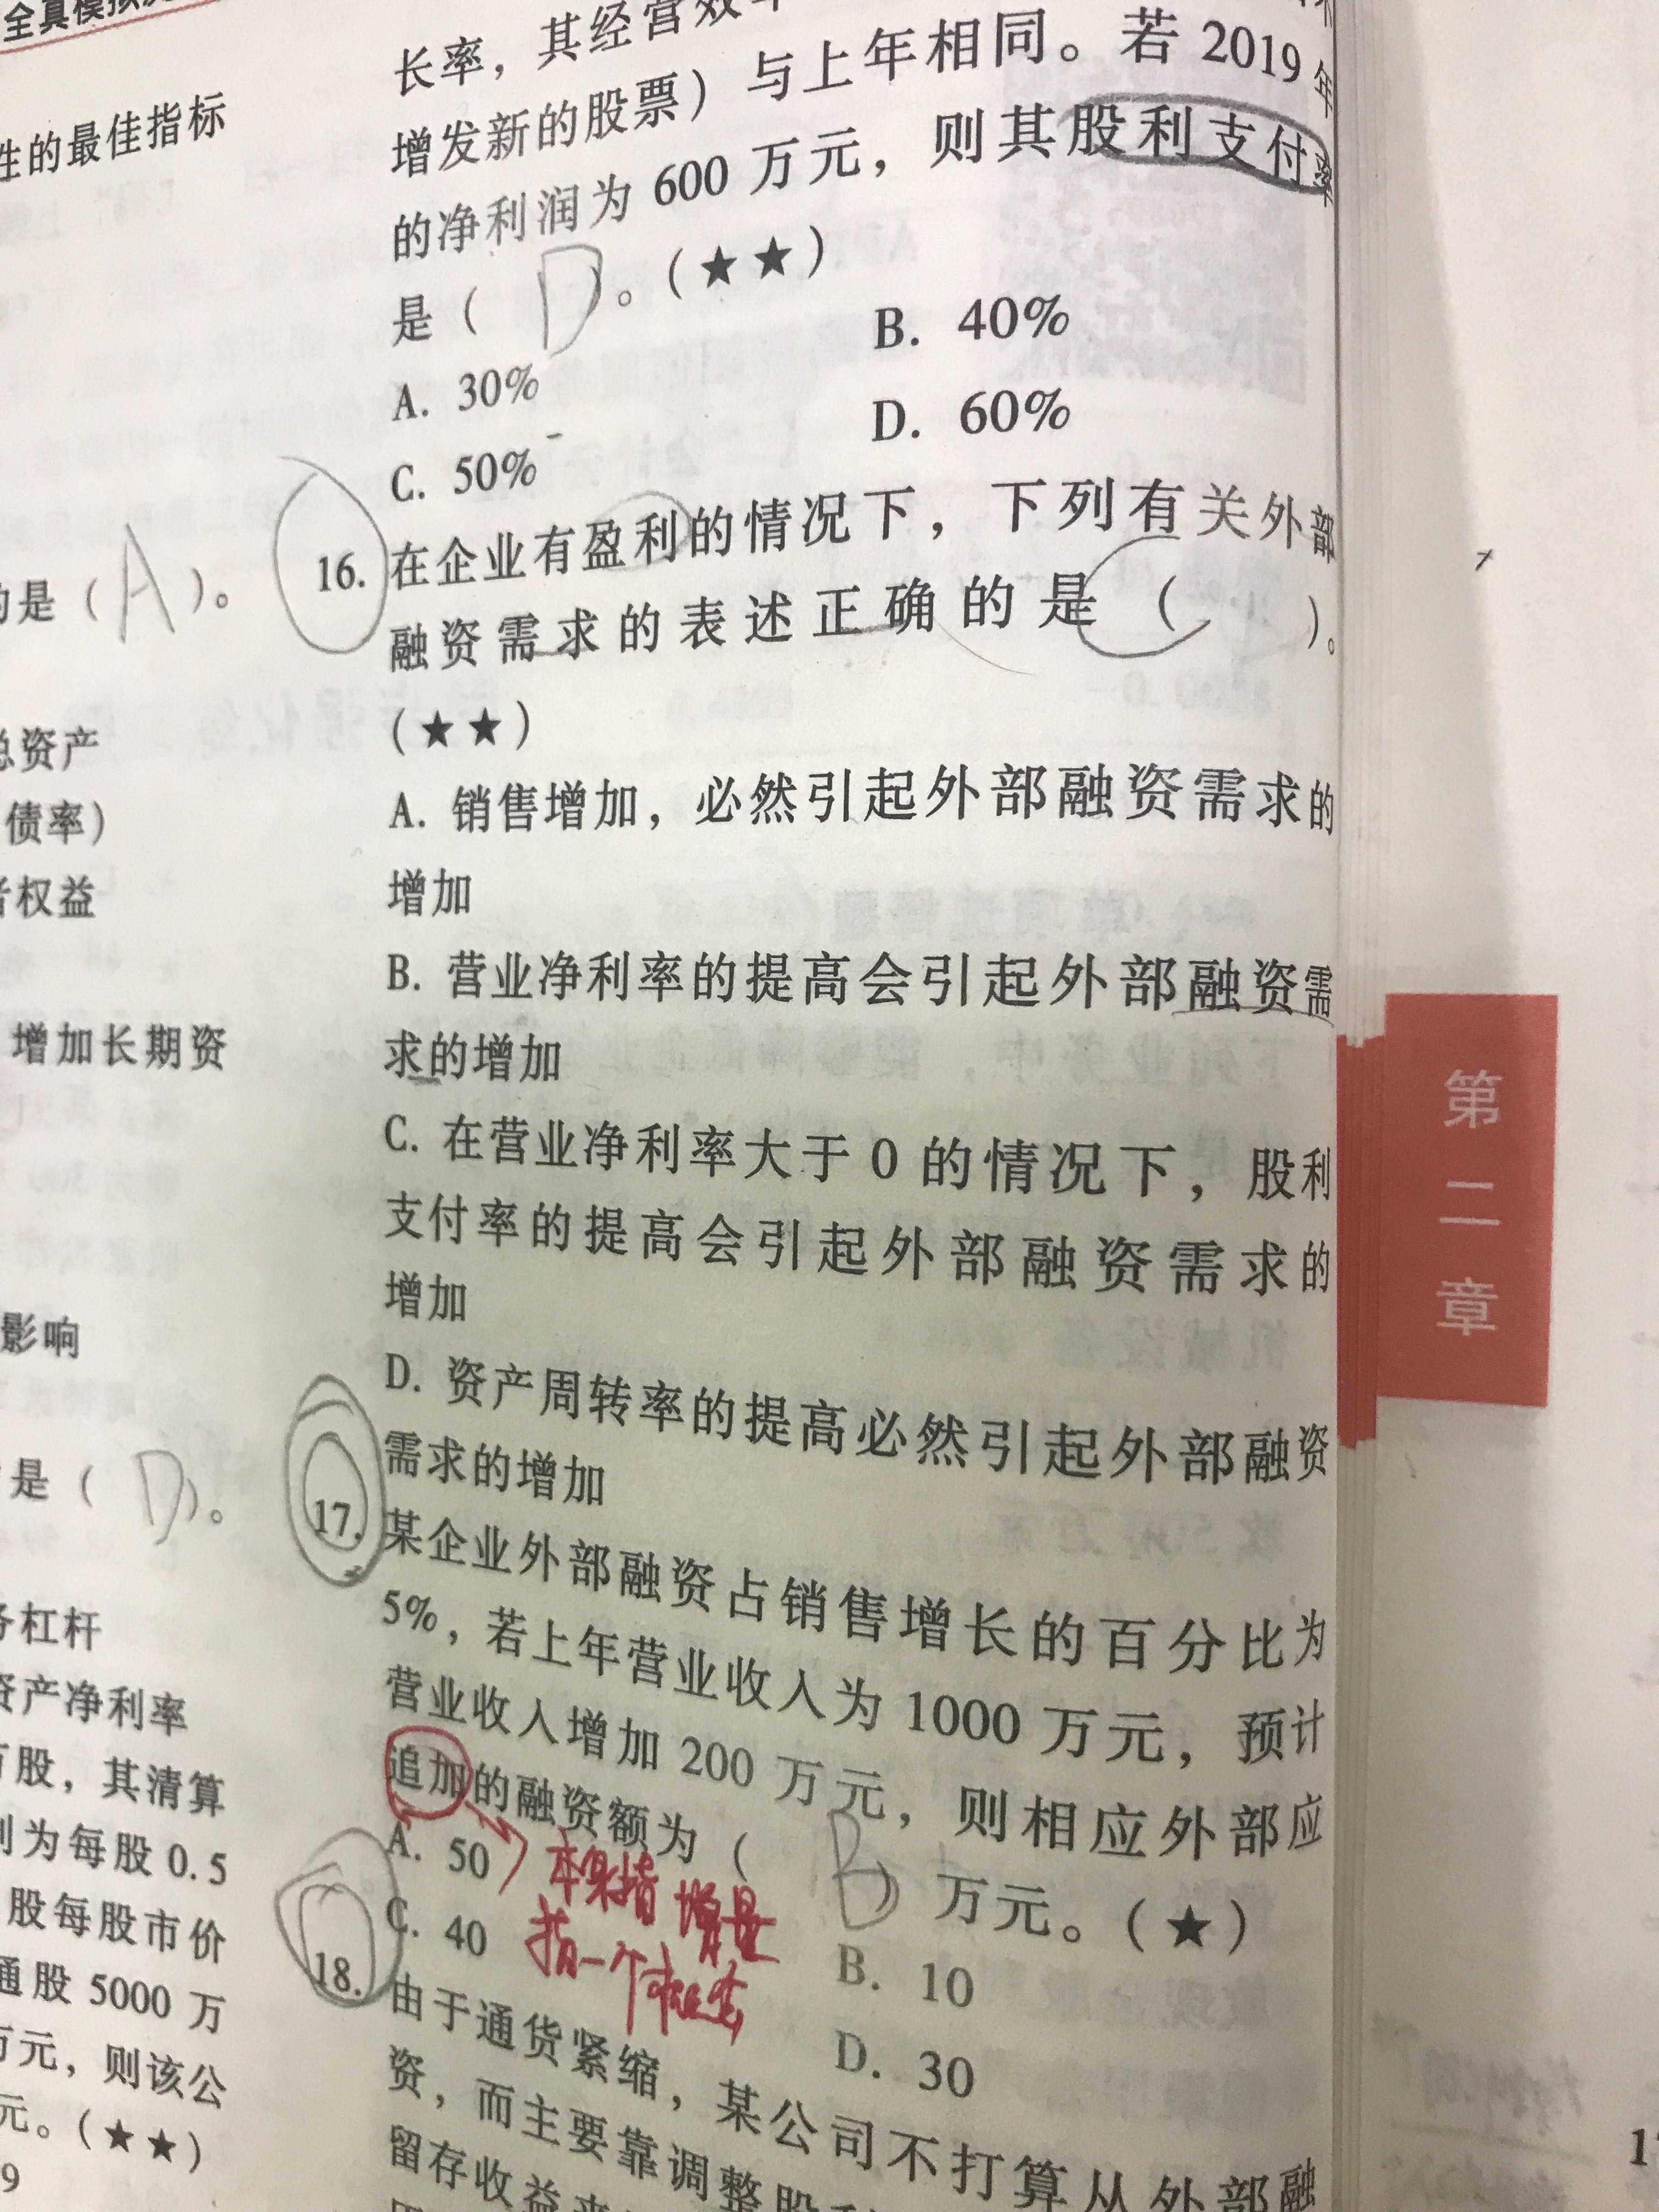 全真模拟
性的最佳指标
的是（A）。
总资产
债率）
者权益
增加长期资
影响
是（D）。
务杠杆
资产净利率
万股，其清算
别为每股 0.5
股每股市价
通股 5000 万
万元，则该公
元。（★★）
9
长率，其经营效率
增发新的股票）与上年相同。若 2019 年
的净利润为 600 万元，则其股利支付率
是（D）。（★★）
A. 30%
B. 40%
C. 50%
D. 60%
16. 在企业有盈利的情况下，下列有关外部
融资需求的表述正确的是（ ）。
（★★）
A. 销售增加，必然引起外部融资需求的
增加
B. 营业净利率的提高会引起外部融资需
求的增加
C. 在营业净利率大于 0 的情况下，股利
支付率的提高会引起外部融资需求的
增加
D. 资产周转率的提高必然引起外部融资
需求的增加
17. 某企业外部融资占销售增长的百分比为
5%，若上年营业收入为 1000 万元，预计
营业收入增加 200 万元，则相应外部应
追加的融资额为（B）万元。（★）
A. 50
B. 10
C. 40
D. 30
增量
指一个
18. 由于通货紧缩，某公司不打算从外部融
资，而主要靠调整股利
留存收益
第二章